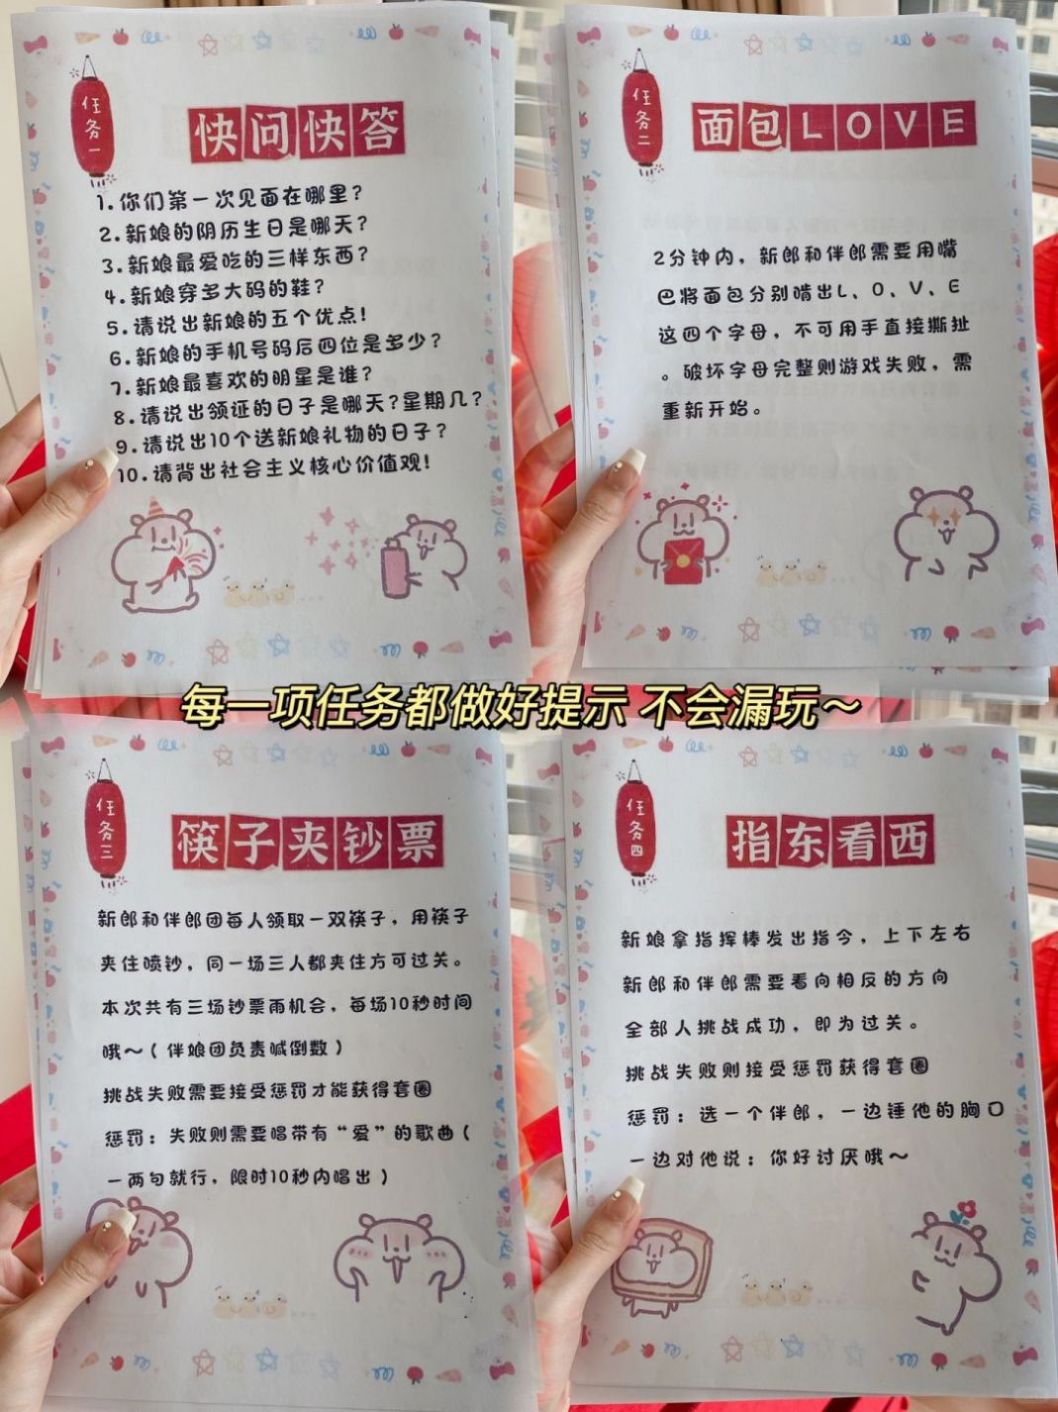 任务一
快问快答
1.你们第一次见面在哪里?
2.新娘的阴历生日是哪天?
3.新娘最爱吃的三样东西?
4.新娘穿多大码的鞋?
5.请说出新娘的五个优点!
6.新娘的手机号码后四位是多少?
7.新娘最喜欢的明星是谁?
8.请说出领证的日子是哪天?星期几?
9.请说出10个送新娘礼物的日子?
10.请背出社会主义核心价值观!
任务二
面包LOVE
2分钟内，新郎和伴郎需要用嘴
巴将面包分别啃出L、O、V、E
这四个字母，不可用手直接撕扯
。破坏字母完整则游戏失败，需
重新开始。
每一项任务都做好提示 不会漏玩～
任务三
筷子夹钞票
新郎和伴郎团每人领取一双筷子，用筷子
夹住喷钞，同一场三人都夹住方可过关。
本次共有三场钞票雨机会，每场10秒时间
哦～(伴娘团负责喊倒数)
挑战失败需要接受惩罚才能获得套圈
惩罚：失败则需要唱带有“爱”的歌曲(
一两句就行，限时10秒内唱出)
任务四
指东看西
新娘拿指挥棒发出指令，上下左右
新郎和伴郎需要看向相反的方向
全部人挑战成功，即为过关。
挑战失败则接受惩罚获得套圈
惩罚：选一个伴郎，一边锤他的胸口
一边对他说：你好讨厌哦～